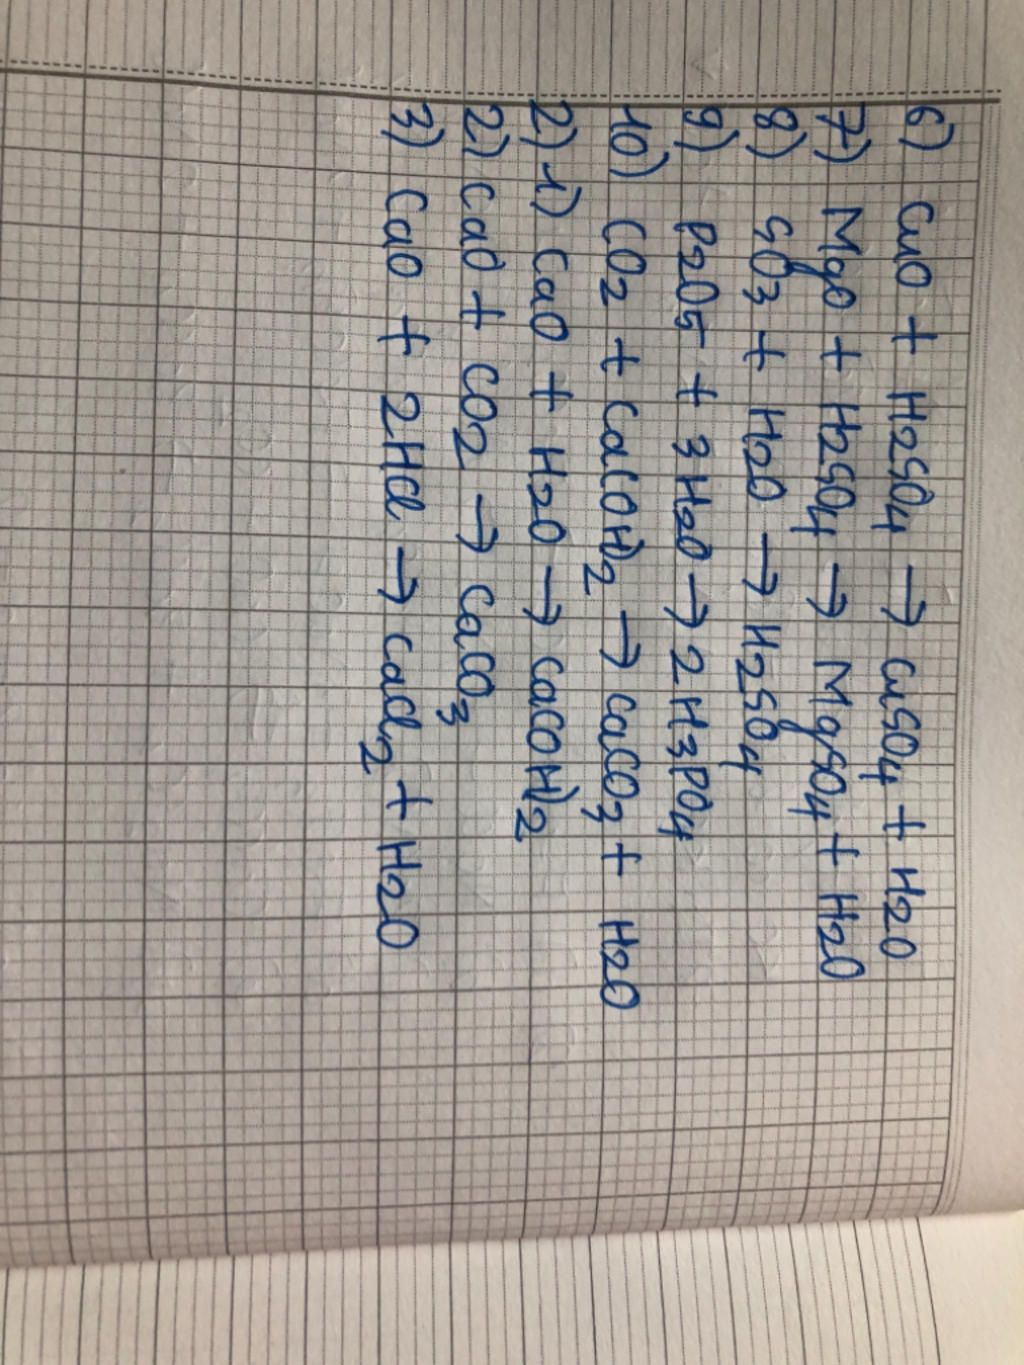 6) CuO + H2SO4 → CuSO4 + H2O
7) MgO + H2SO4 → MgSO4 + H2O
8) SO3 + H2O → H2SO4
9) P2O5 + 3H2O → 2H3PO4
10) CO2 + Ca(OH)2 → CaCO3 + H2O
2) 1) CaO + H2O → Ca(OH)2
2) CaO + CO2 → CaCO3
3) CaO + 2HCl → CaCl2 + H2O